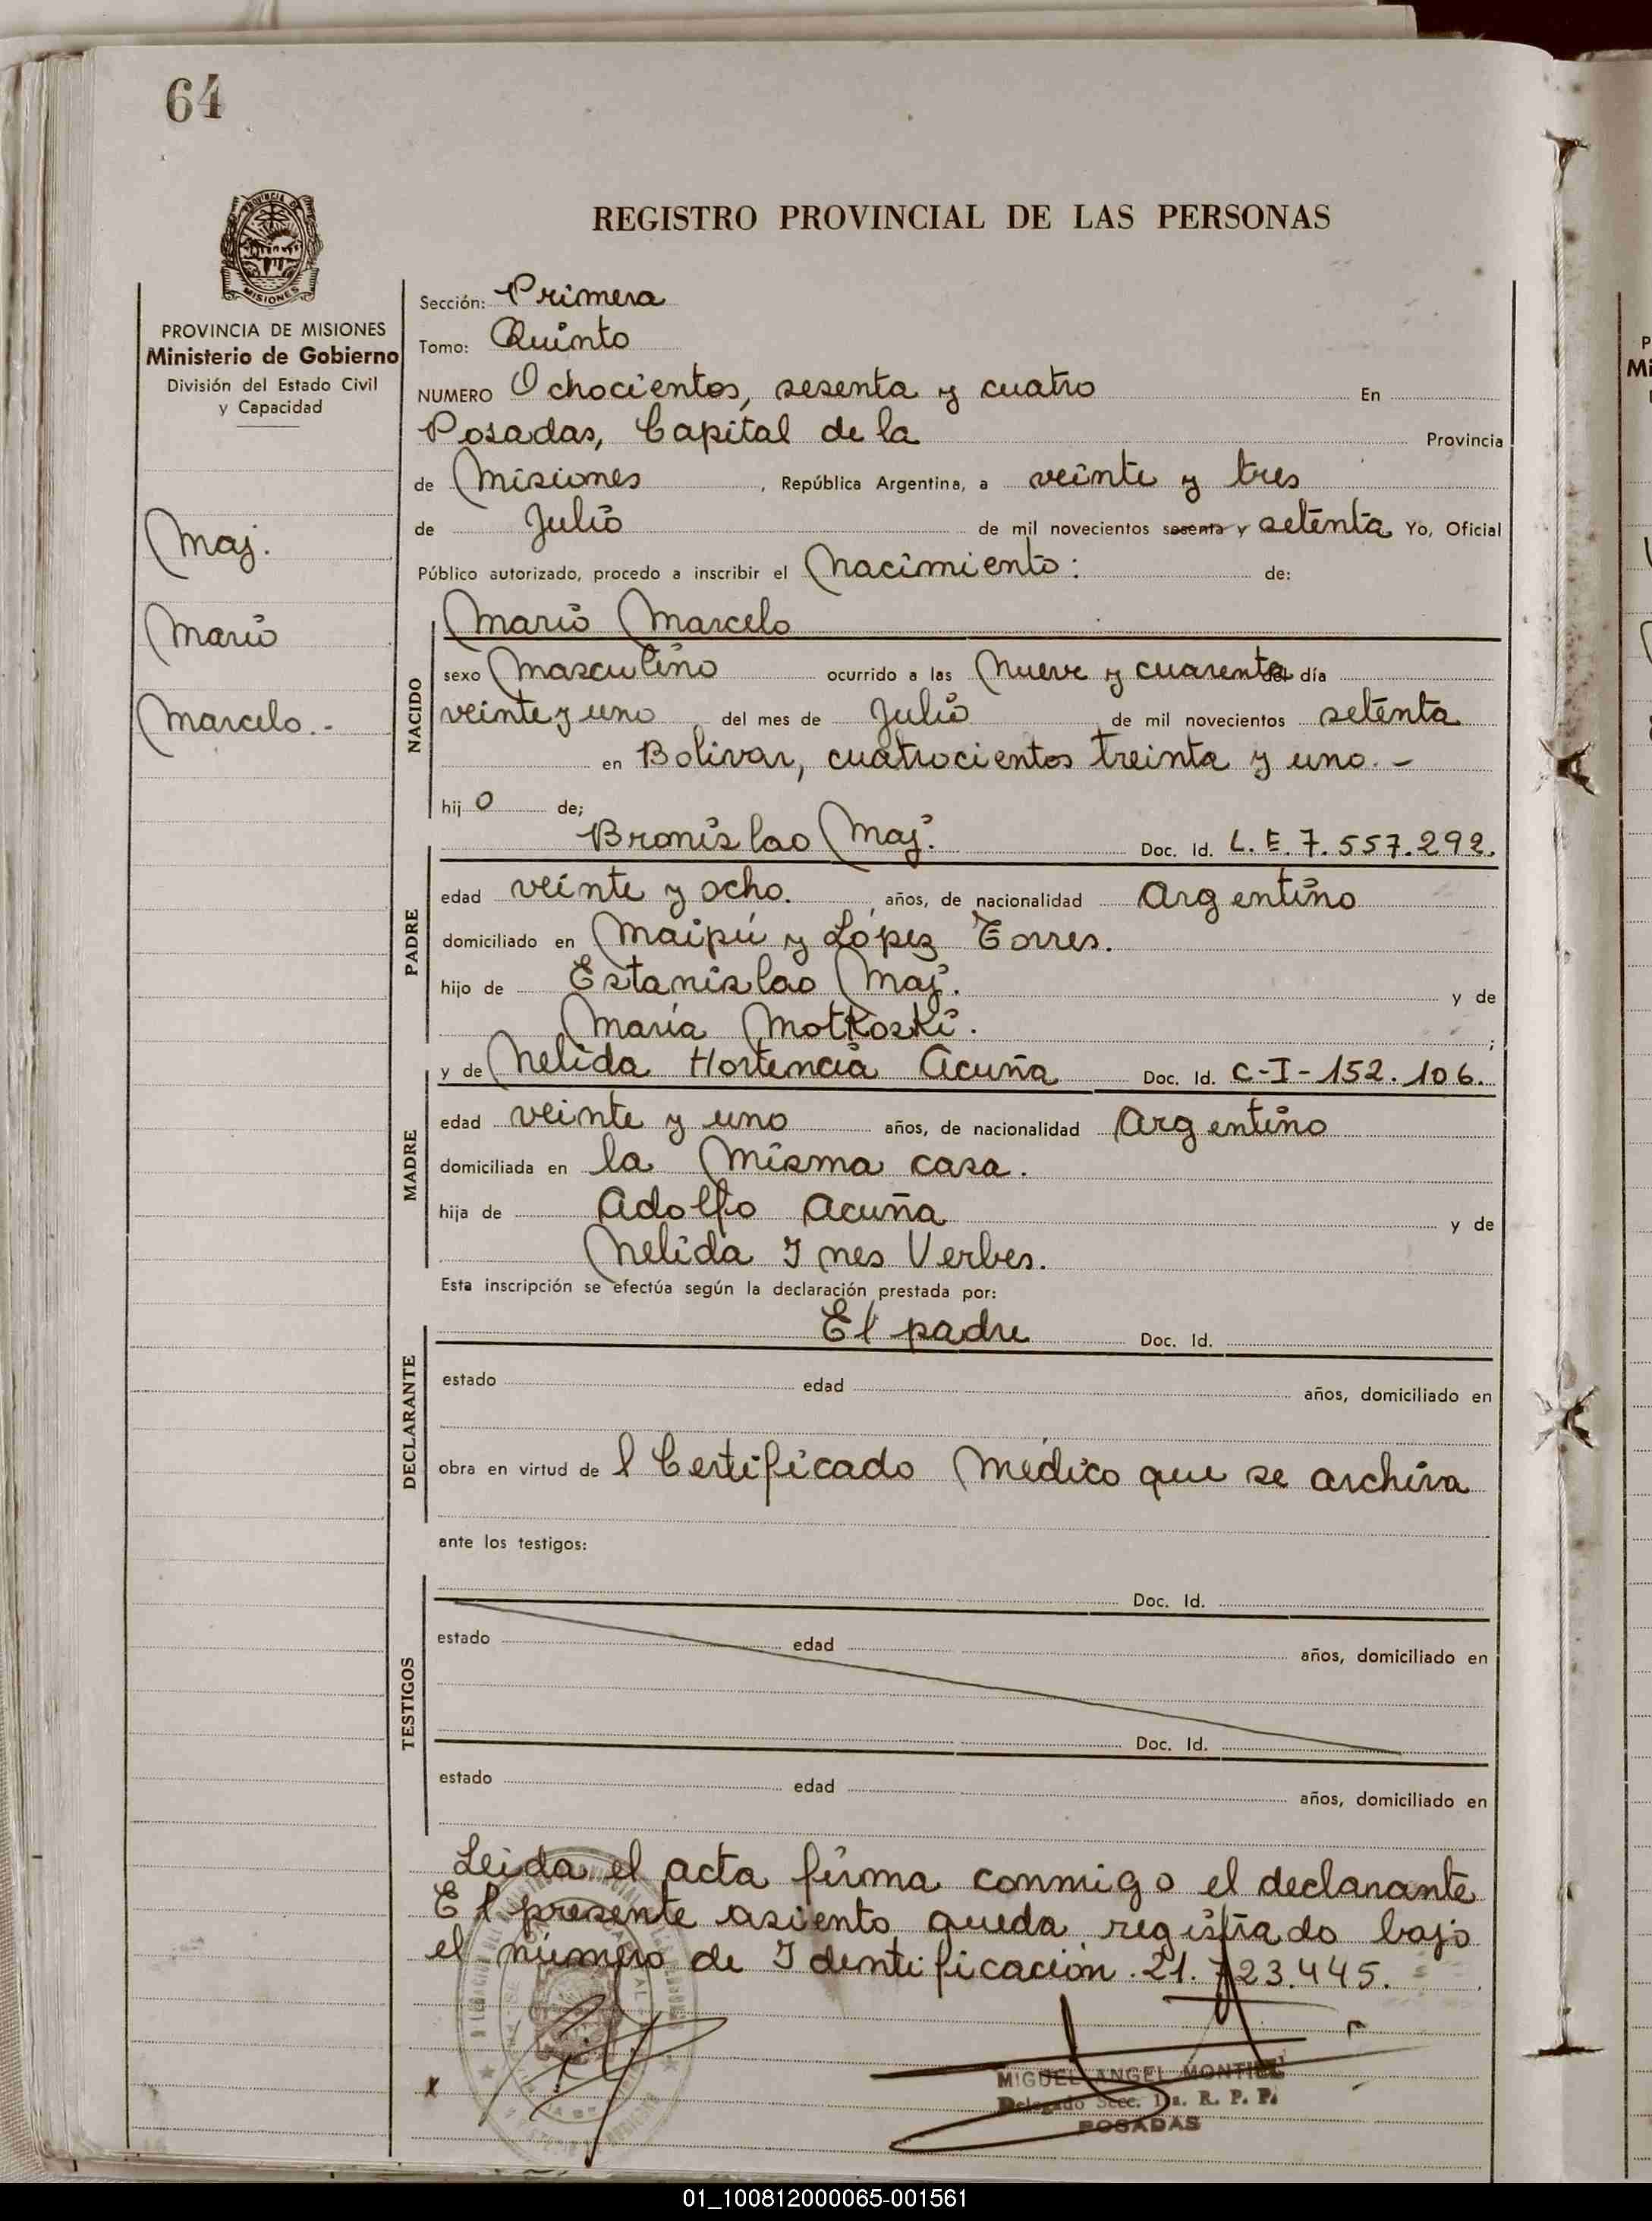 64
PROVINCIA DE
MISIONES
REGISTRO PROVINCIAL DE LAS PERSONAS
PROVINCIA DE MISIONES
Ministerio de Gobierno
División del Estado Civil
y Capacidad
Maj.
Mario
Marcelo.-
Sección: Primera
Tomo: Quinto
NUMERO Ochocientos, sesenta y cuatro En
Posadas, Capital de la Provincia
de Misiones, República Argentina, a veinte y tres
de Julio de mil novecientos sesenta y setenta Yo, Oficial
Público autorizado, procedo a inscribir el Nacimiento: de:
NACIDO
Mario Marcelo
sexo Masculino ocurrido a las Nueve y cuarenta del día
veinte y uno del mes de Julio de mil novecientos setenta
en Bolivar, cuatrocientos treinta y uno.-
hij o de;
PADRE
Bronislao Maj. Doc. Id. L.E. 7.557.292.
edad veinte y ocho. años, de nacionalidad Argentino
domiciliado en Maipú y López Torres.
hijo de Estanislao Maj. y de
María Motkoski. ;
MADRE
y de Nelida Hortencia Acuña Doc. Id. C-I-152.106.
edad veinte y uno años, de nacionalidad Argentino
domiciliada en la misma casa.
hija de Adolfo Acuña y de
Nelida Ines Verbes.
Esta inscripción se efectúa según la declaración prestada por:
DECLARANTE
El padre Doc. Id.
estado edad años, domiciliado en
obra en virtud de l Certificado Médico que se archiva
ante los testigos:
TESTIGOS
Doc. Id.
estado edad años, domiciliado en
Doc. Id.
estado edad años, domiciliado en
Leida el acta firma conmigo el declarante
El presente asiento queda registrado bajo
el número de Identificación. 21.723.445.
x
MIGUEL ANGEL MONTIEL
Delegado Secc. 1ra. R. P. P.
POSADAS
01_100812000065-001561